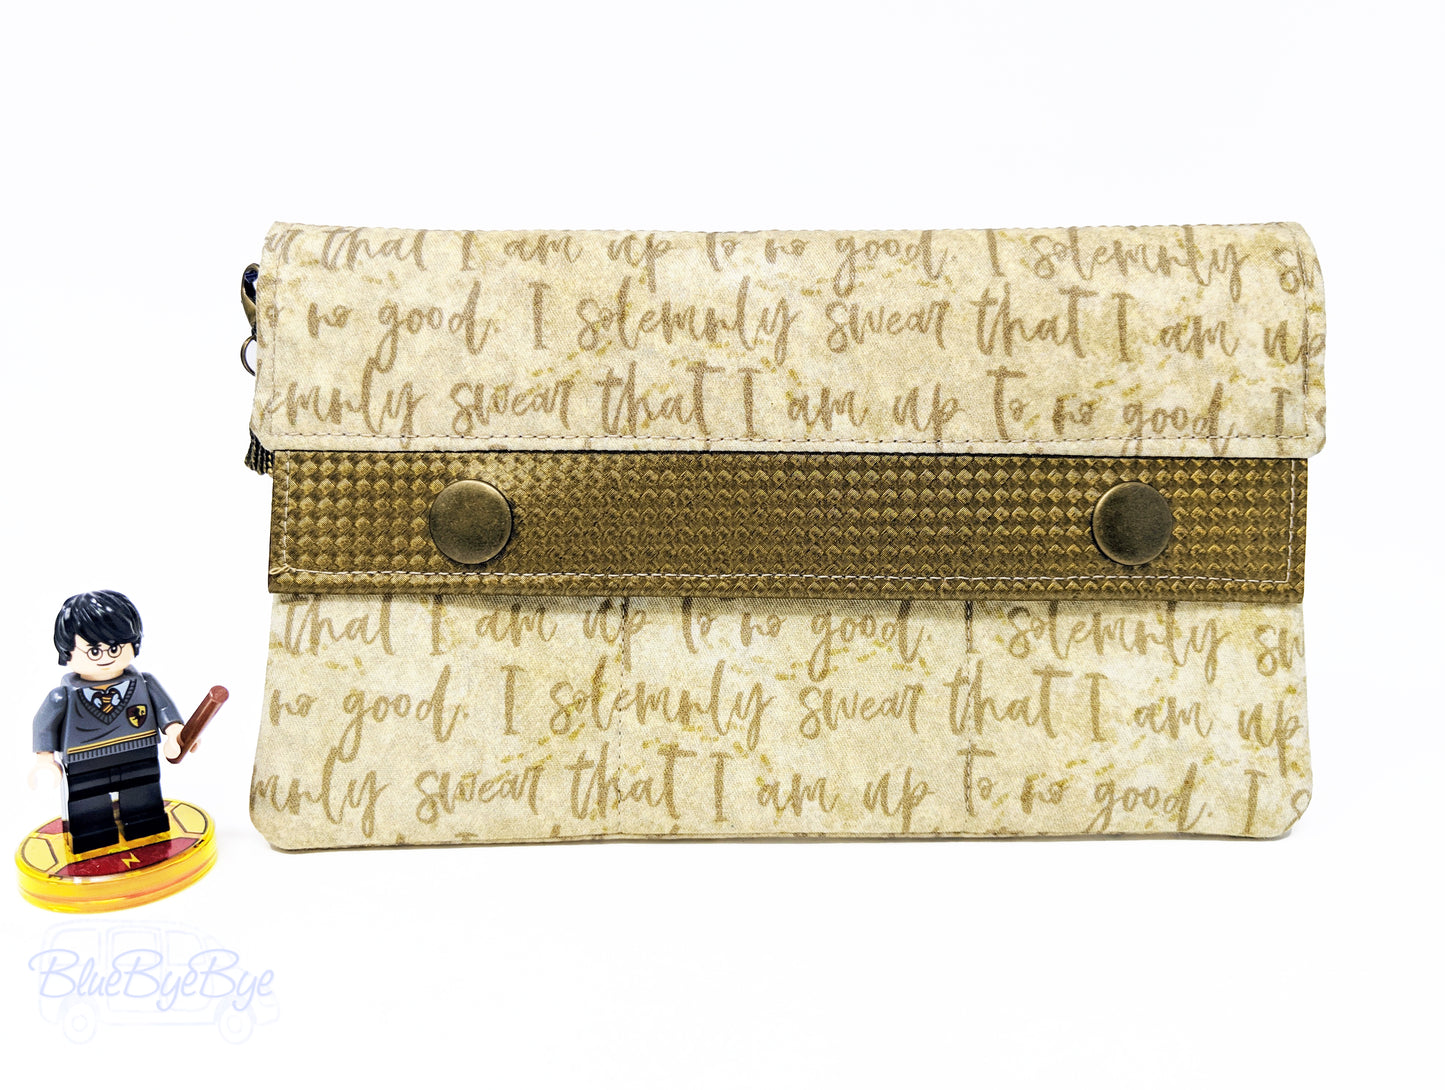 ar that I am up to no good. I solemnly sw
o no good. I solemnly swear that I am up
emnly swear that I am up to no good. I s
that I am up to no good. I solemnly sw
no good. I solemnly swear that I am up
mnly swear that I am up to no good. I s
BlueByeBye